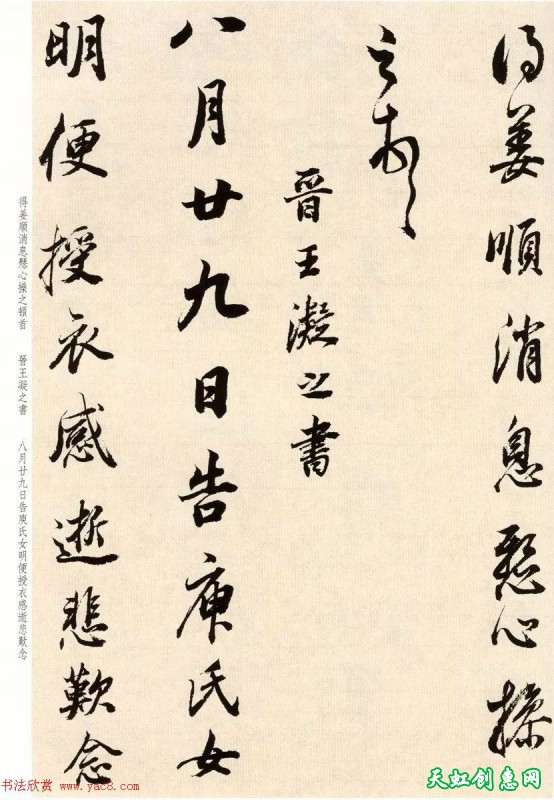 得姜順消息懸心操
之頓首
晉王凝之書
八月廿九日告庾氏女
明便授衣感逝悲歎念
得姜順消息懸心操之頓首 晉王凝之書 八月廿九日告庾氏女明便授衣感逝悲歎念
书法欣赏 www.yac8.com
天虹创惠网